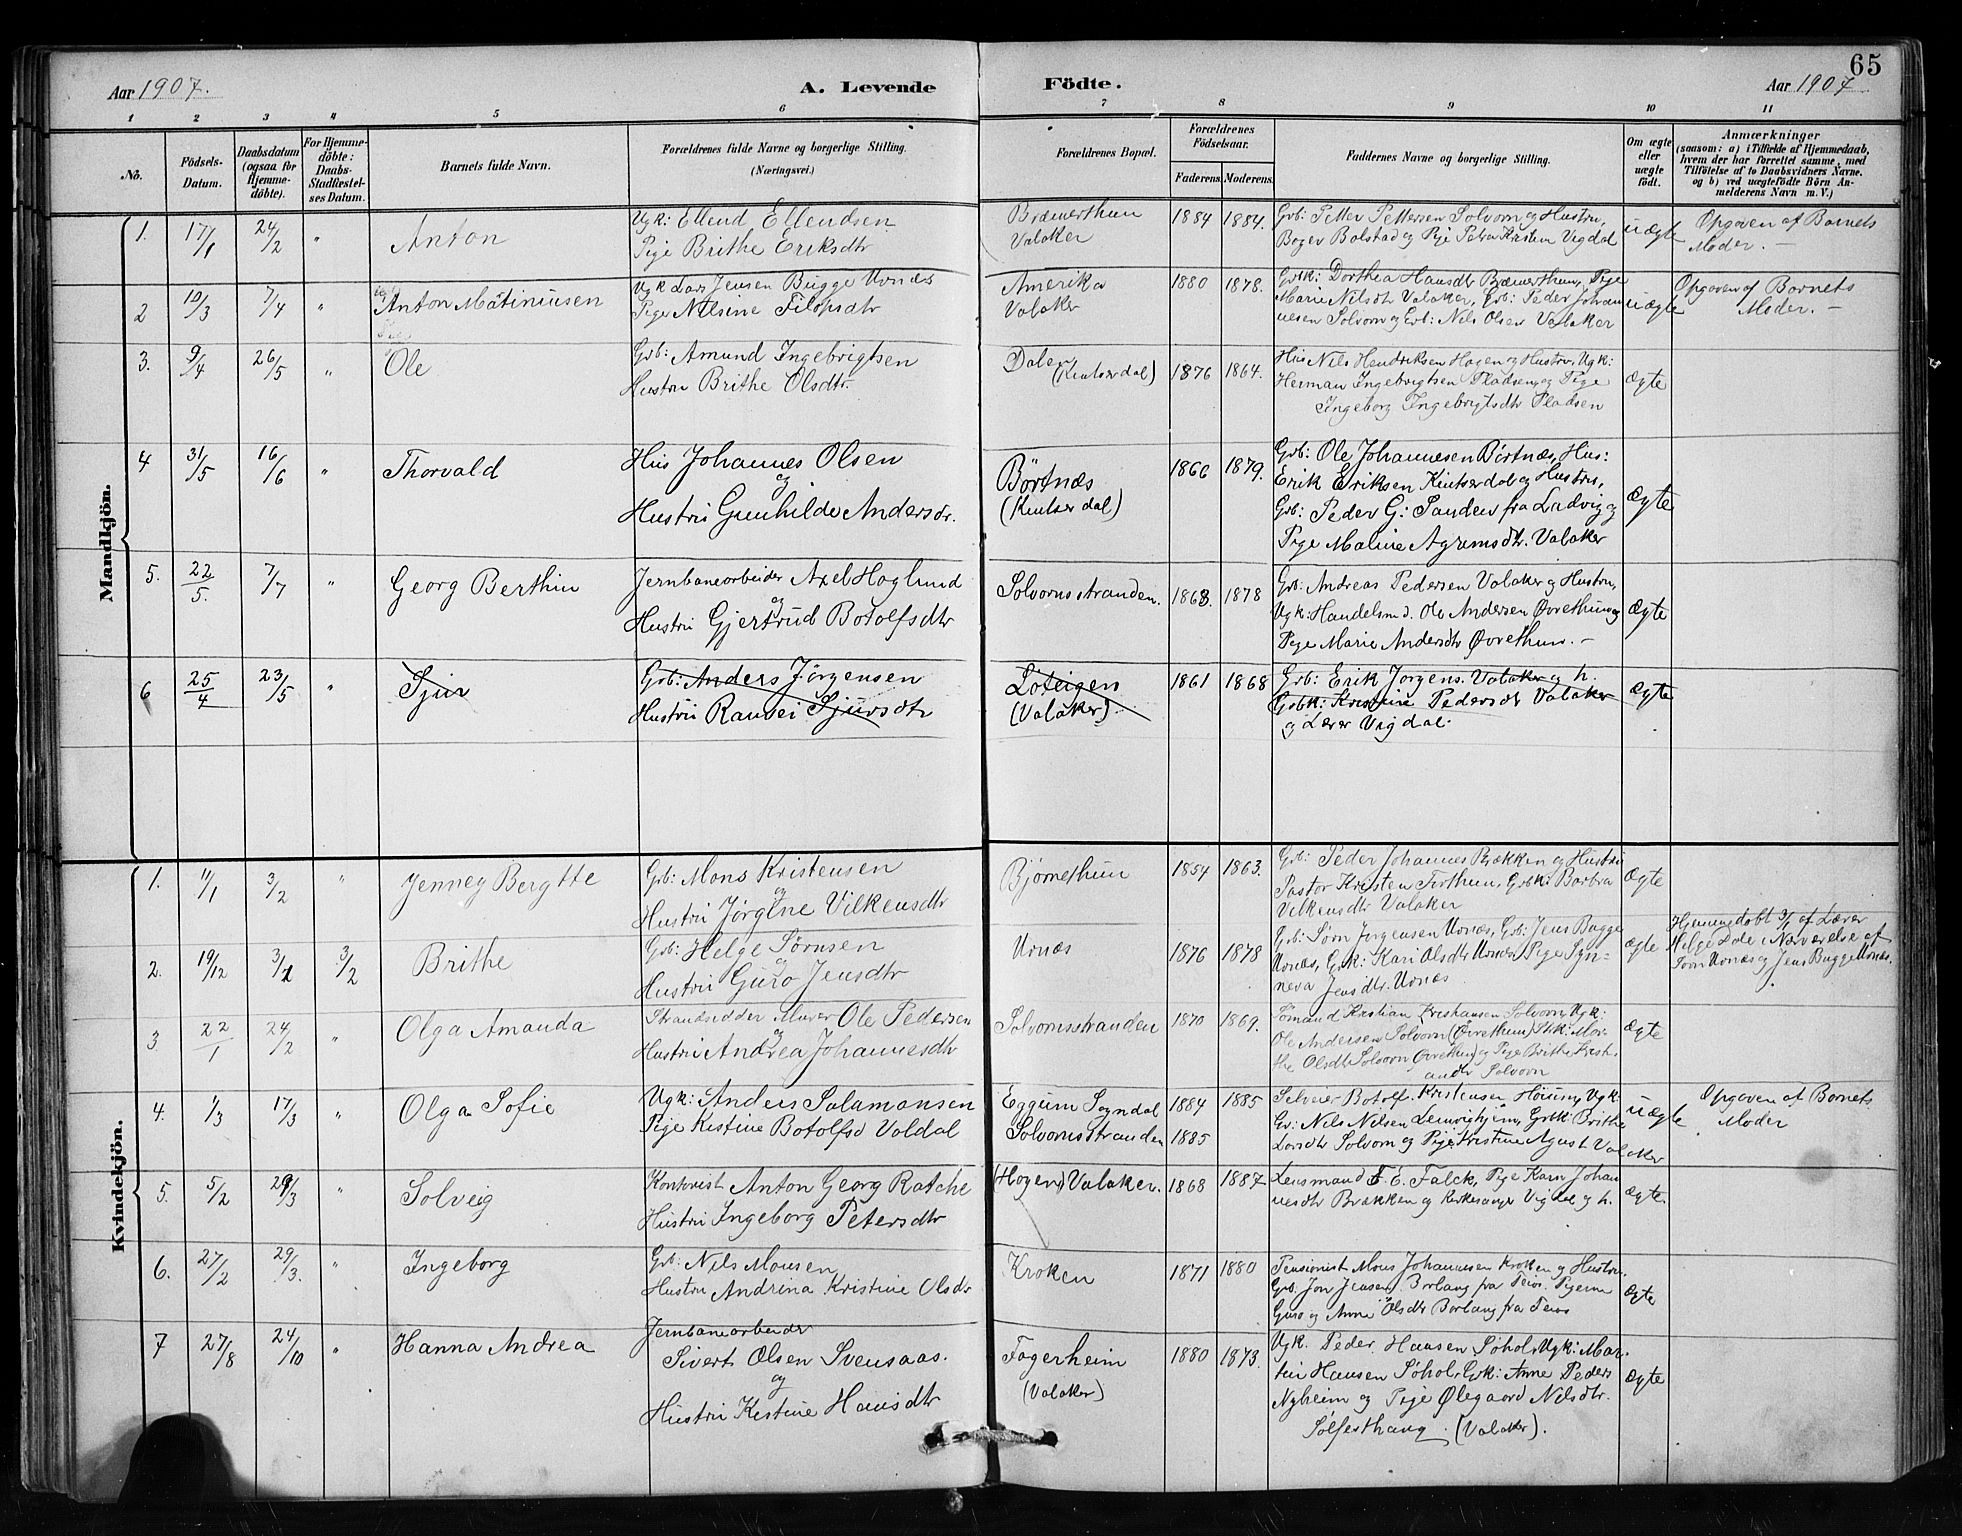 65
Aar 1907.
A. Levende
Födte.
Aar 1907
1 2 3 4 5 6 7 8 9 10 11
No.
Födsels-
Datum.
Daabsdatum
(ogsaa for
Hjemme-
döbte).
For Hjemme-
döbte:
Daabs-
Stadfæstel-
ses Datum.
Barnets fulde Navn.
Forældrenes fulde Navne og borgerlige Stilling.
(Næringsvei.)
Forældrenes Bopæl.
Forældrenes
Födselsaar.
Faderens. Moderens.
Faddernes Navne og borgerlige Stilling.
Om ægte
eller
uægte
födt.
Anmærkninger
(saasom: a) i Tilfælde af Hjemmedaab,
hvem der har forrettet samme, med
Tilföielse af to Daabsvidners Navne,
og b) ved uægtefödte Börn An-
melderens Navn m.V.)
Mandkjön.
1. 17/1 24/2 " Anton
Ugk: Ellend Ellendsen
Pige Brithe Eriksdtr
Valaker
1884 1884.
Grb: Petter Pettersen Solvorn og Hustru,
Bolstad og Pige Kristen Vigdal
uægte
Opgaven af Barnets
Moder. —
2 10/3 7/4 " Anton Matiniusen
Ugk Lars Jensen Bugge Urnæs
Pige Nilsine Filipsdtr
Amerika
Valaker
1880 1878.
Grbk: Dorthea Hansdtr Pige
Marie Nilsdtr Valaker, Grb: Peder Johan-
nesen Solvorn og Grb: Nils Olsen Valaker
uægte
Opgaven af Barnets
Moder. —
3. 9/4 26/5 " Ole
Grb: Amund Ingebrigtsen
Hustru Brithe Olsdtr.
Dalen
(Kinserdal)
1876 1864.
Hus Nils Hendriksen Hagen og Hustru, Ugk:
Herman Ingebrigtsen Pladsen og Pige
Ingeborg Ingebrigtsdtr Pladsen
ægte
4 31/5 16/6 " Thorvald
Hus Johannes Olsen
og
Hustru Gunhilde Andersdr.
Børtnæs
(Kinserdal)
1860 1879.
Grb: Ole Johannesen Børtnæs, Hus:
Erik Eriksen Kinserdal og Hustru,
Grb: Peder G: Sanden fra Ladvig og
Pige Maline Valaker
ægte
5. 22/5. 7/7 " Georg Berthin
Jernbanearbeider Axel Høglund
og
Hustru Gjertrud Botolfsdtr
Solvornsstranden.
1868. 1878
Grb: Andreas Pedersen Valaker og Hustru,
Ugk: Handelsmd. Ole Andersen Øvrethun og
Pige Marie Andersdtr Øvrethun. —
ægte
6 25/4 23/5 " Sjur
Grb: Anders Jørgensen
Hustru Ransei Sjursdtr
Løteigen
(Valaker)
1861 1868
Grb: Erik Jørgens. Valaker og h.
Grbk: Kristine Pedersdtr Valaker
og Lærer Vigdal.
ægte
Kvindekjön.
1. 11/1 3/2 " Jenney Bergtte
Grb: Mons Kristensen
og
Hustru Jørgine Vilkensdtr
Bjørnethun
1854 1863.
Grb: Peder Johannes Brækken og Hustru
Pastor Kristen Grbk: Barbra
Vilkensdtr Valaker
ægte
2. 19/12 3/1 3/2 Brithe
Grb: Helge Sørnsen
og
Hustru Guro Jensdtr
Urnæs
1876 1878
Grb: Sørn Jørgensen Urnæs, Grb: Jens Bugge
Urnæs, Grbk: Kari Olsdtr Urnæs Pige Syn-
neva Jensdtr. Urnæs
ægte
Hjemmedøbt 3/1 af Lærer
Helge Lole i Nærværelse af
Sørn Urnæs og Jens Bugge Urnæs.
3. 22/1 24/2 " Olga Amanda
Strandsidder Murer Ole Pedersen
og
Hustru Andrea Johannesdtr
Solvornsstranden
1870 1869.
Sømand Kristian Kristiansen Solvorn, Ugk:
Ole Andersen Solvorn (Øvrethun)
Olsdtr Solvorn (Øvrethun) og Pige Brithe Krist-
Solvorn
ægte
4. 1/3 17/3 " Olga Sofie
Ugk: Anders Salamonsen
Pige Kistine Botolfsd Valdal
Eggum Sogndal
Solvornsstranden
1884 1885
1885
Selveier Botolf Kristensen Ugk:
Nils Nilsen Grbk: Brithe
Larsdtr Solvorn og Pige Kristine Agust Valaker
uægte
Opgaven af Barnets
Moder
5. 5/2 29/3 " Solveig
Kontorist Anton Georg Ratche
Hustru Ingeborg Petersdtr
(Hagen) Valaker.
1868 1887
Lensmand E. Falck, Pige Karn Johan
nesdtr Brækken og Kirkesanger Vigdal og h.
ægte.
6. 27/2 29/3. " Ingeborg
Grb: Nils Monsen
Hustru Andrina Kristine Olsdtr
Kroken
1871 1880
Pensionist Mons Johannesen Kroken og Hustru.
Grb. Jon Jensen Borlaug fra Feios. Pigerne
Guro og Anne Olsdtr Borlaug fra Feios
ægte
7 27/8 24/10 " Hanna Andrea
Jernbanearbeider
Sivert Olsen Svensaas.
og
Hustru Kistine Hansdtr
Fagerheim
(Valaker)
1880 1873.
Ugk. Peder Hansen Søhol, Ugk: Mar-
tin Hansen Søhol, Gk: Anne Peders
Nyheim og Pige Ølegaard Nilsdtr.
Solfesthaug (Valaker).
ægte